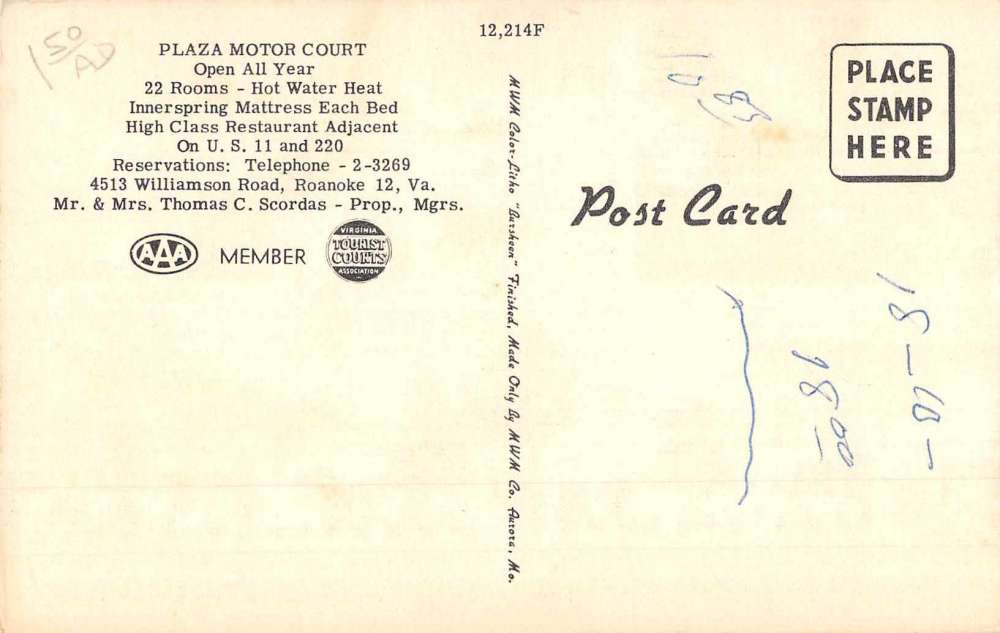 12,214F
PLAZA MOTOR COURT
Open All Year
22 Rooms - Hot Water Heat
Innerspring Mattress Each Bed
High Class Restaurant Adjacent
On U. S. 11 and 220
Reservations: Telephone - 2-3269
4513 Williamson Road, Roanoke 12, Va.
Mr. & Mrs. Thomas C. Scordas - Prop., Mgrs.
AAA
MEMBER
VIRGINIA
TOURIST
COURTS
ASSOCIATION
MWM Color-Litho "Dursheen" Finished, Made Only By MWM Co. Aurora, Mo.
Post Card
PLACE
STAMP
HERE
150